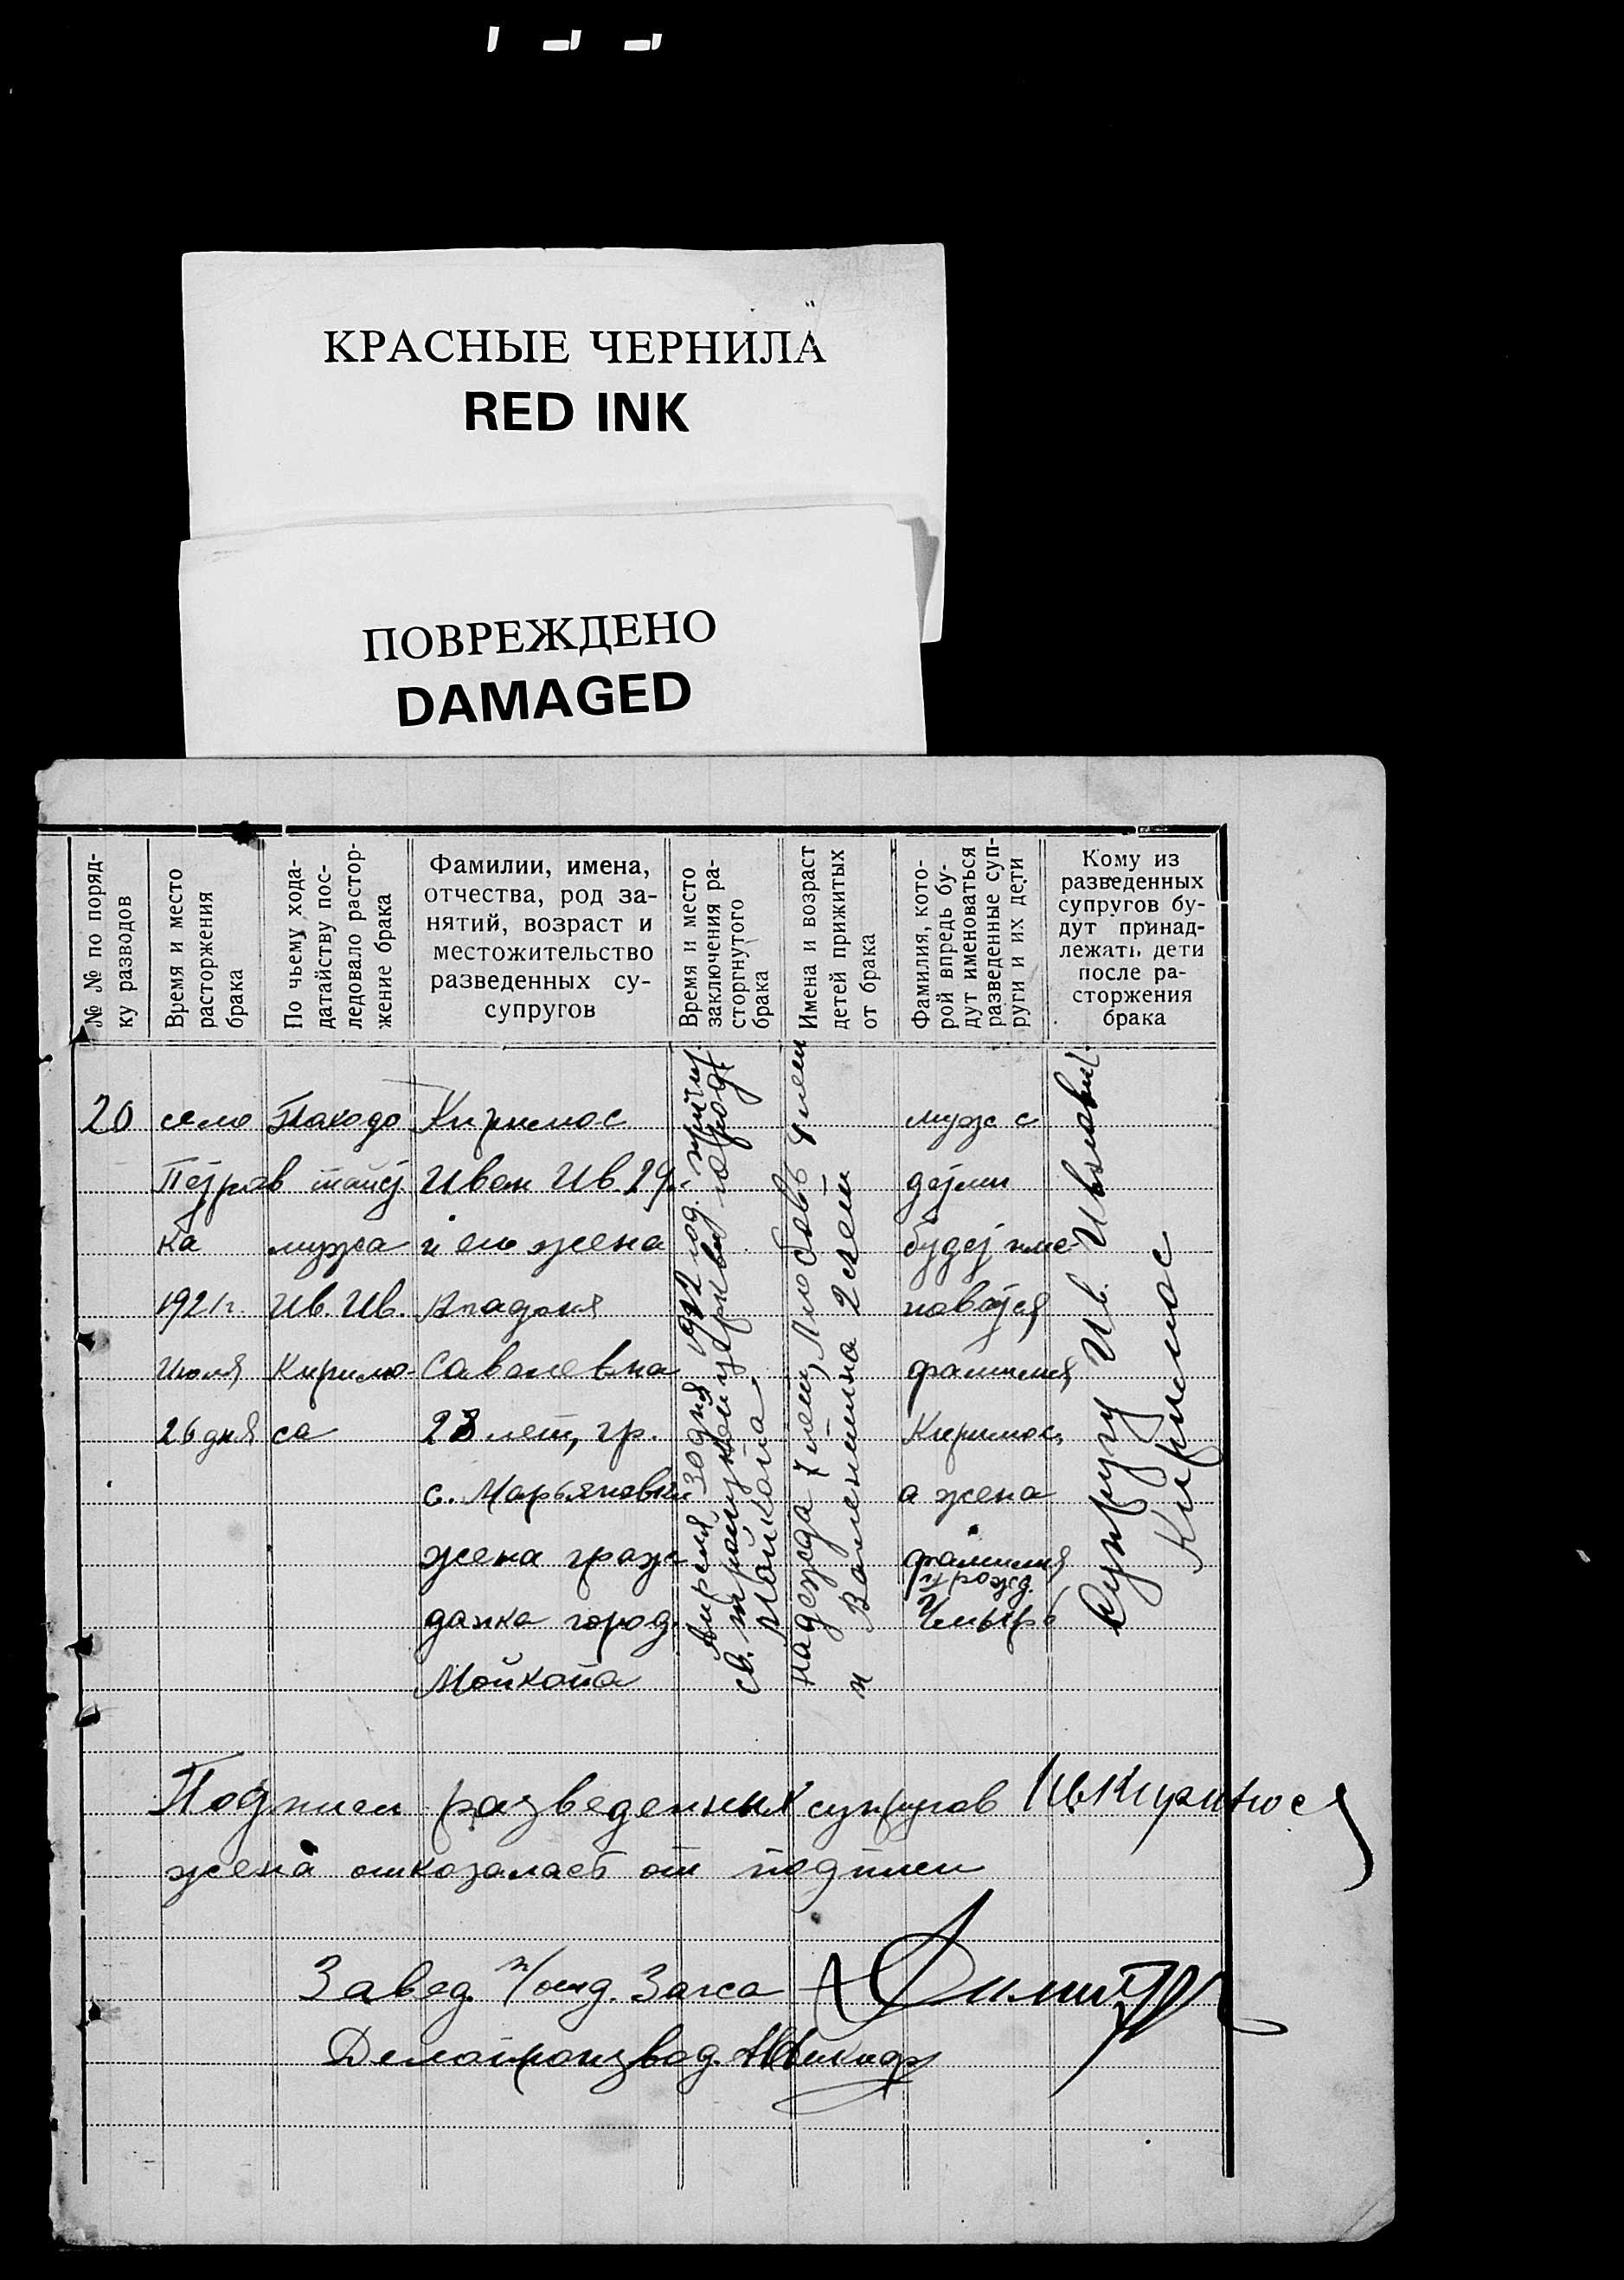 КРАСНЫЕ ЧЕРНИЛА
RED INK
ПОВРЕЖДЕНО
DAMAGED
№ № по поряд-
ку разводов
Время и место
расторжения
брака
По чьему хода-
датайству пос-
ледовало растор-
жение брака
Фамилии, имена,
отчества, род за-
нятий, возраст и
местожительство
разведенных су-
супругов
Время и место
заключения ра-
сторгнутого
брака
Имена и возраст
детей прижитых
от брака
Фамилия, кото-
рой впредь бу-
дут именоваться
разведенные суп-
руги и их дети
Кому из
разведенных
супругов бу-
дут принад-
лежать дети
после ра-
сторжения
брака
20
село
Петров
ка
1921 г.
Июля
26 дня
Походо
тайст
мужа
Ив. Ив.
Киримо-
са
Киримос
Иван Ив. 29
и его жена
Агадкия
Савелевна
28 лет, гр.
с. Марьяновки
жена граж-
данка город.
Майкопа
Апреля 30 дня 1912 год.
св. троицкой церкви города
Майкопа
Надежда 7 лет, Любовь 4 лет
и Валентина 2 лет
муж с
детми
будет име
новатся
фамилия
Киримос,
а жена
фамилия
Супругу Ив. Ивановичу
Киримос
Подписи разведенных супругов
жена отказалась от подписи
Завед. п/отд. Загса
Делопроизвод.